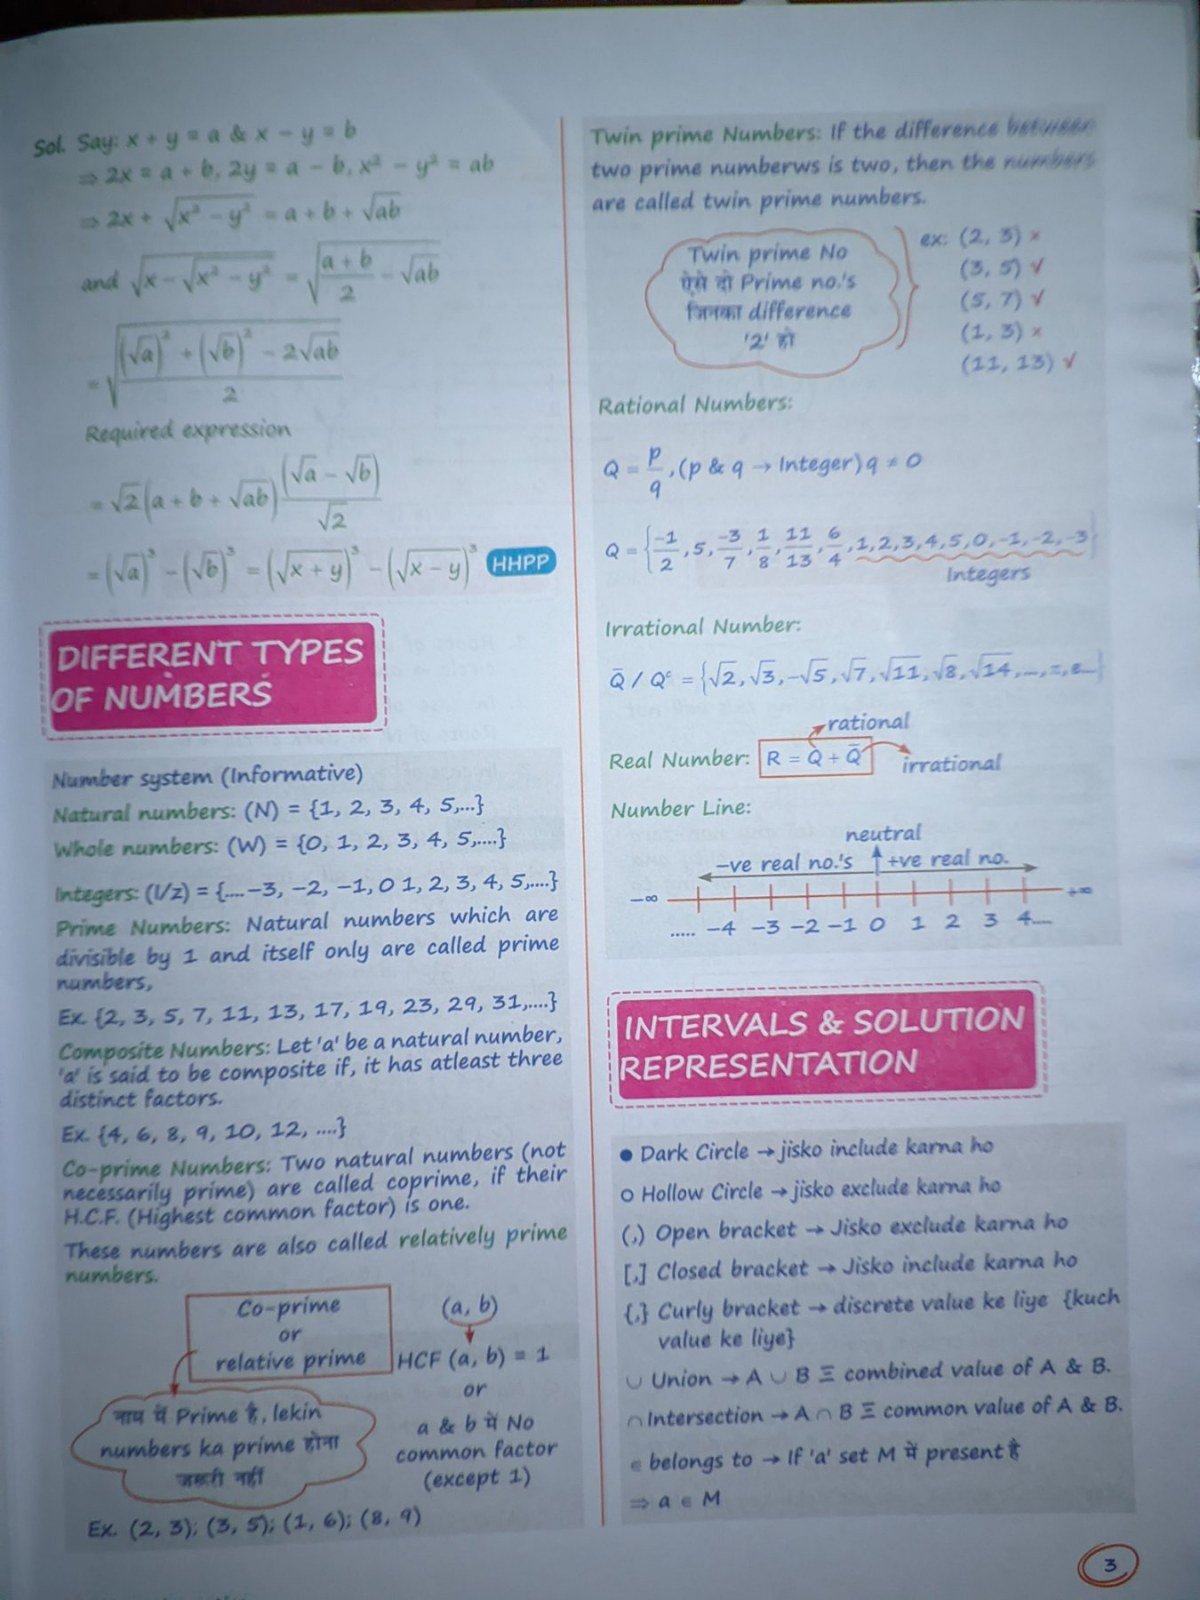 Sol. Say: x + y = a & x − y = b
⇒ 2x = a + b, 2y = a − b, x² − y² = ab
⇒ 2x + √(x² − y²) = a + b + √ab
and √(x − √(x² − y²)) = √((a + b)/2 − √ab)
= √(((√a)² + (√b)² − 2√ab)/2)
Required expression
= √2(a + b + √ab) (√a − √b)/√2
= (√a)³ − (√b)³ = (√(x + y))³ − (√(x − y))³ HHPP
DIFFERENT TYPES
OF NUMBERS
Number system (Informative)
Natural numbers: (N) = {1, 2, 3, 4, 5,...}
Whole numbers: (W) = {0, 1, 2, 3, 4, 5,....}
Integers: (I/z) = {....−3, −2, −1, 0 1, 2, 3, 4, 5,....}
Prime Numbers: Natural numbers which are
divisible by 1 and itself only are called prime
numbers,
Ex. {2, 3, 5, 7, 11, 13, 17, 19, 23, 29, 31,....}
Composite Numbers: Let 'a' be a natural number,
'a' is said to be composite if, it has atleast three
distinct factors.
Ex. {4, 6, 8, 9, 10, 12, ....}
Co-prime Numbers: Two natural numbers (not
necessarily prime) are called coprime, if their
H.C.F. (Highest common factor) is one.
These numbers are also called relatively prime
numbers.
Co-prime
or
relative prime
नाम में Prime है, lekin
numbers ka prime होना
जरूरी नहीं
(a, b)
HCF (a, b) = 1
or
a & b में No
common factor
(except 1)
Ex. (2, 3); (3, 5); (1, 6); (8, 9)
Twin prime Numbers: If the difference between
two prime numberws is two, then the numbers
are called twin prime numbers.
Twin prime No
ऐसे दो Prime no.'s
जिनका difference
'2' हो
ex: (2, 3) ×
(3, 5) √
(5, 7) √
(1, 3) ×
(11, 13) √
Rational Numbers:
Q = p/q, (p & q → Integer) q ≠ 0
Q = {−1/2, 5, −3/7, 1/8, 11/13, 6/4, 1, 2, 3, 4, 5, 0, −1, −2, −3}
Integers
Irrational Number:
Q̄ / Qᶜ = {√2, √3, −√5, √7, √11, √8, √14, ..., π, e...}
rational
Real Number: R = Q + Q̄
irrational
Number Line:
neutral
−ve real no.'s +ve real no.
−∞ +∞
..... −4 −3 −2 −1 0 1 2 3 4....
INTERVALS & SOLUTION
REPRESENTATION
● Dark Circle → jisko include karna ho
○ Hollow Circle → jisko exclude karna ho
(,) Open bracket → Jisko exclude karna ho
[,] Closed bracket → Jisko include karna ho
{,} Curly bracket → discrete value ke liye {kuch
value ke liye}
∪ Union → A ∪ B Ξ combined value of A & B.
∩ Intersection → A ∩ B Ξ common value of A & B.
∈ belongs to → If 'a' set M में present है
⇒ a ∈ M
3